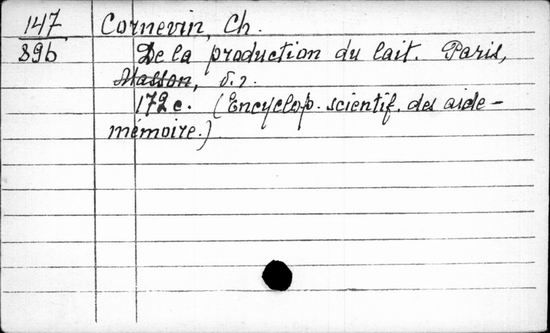 147 Cornevin, Ch.
896 De la production du lait. Paris,
Masson, б.г.
172 с. (Encyclop. scientif. des aide-
mémoire.)